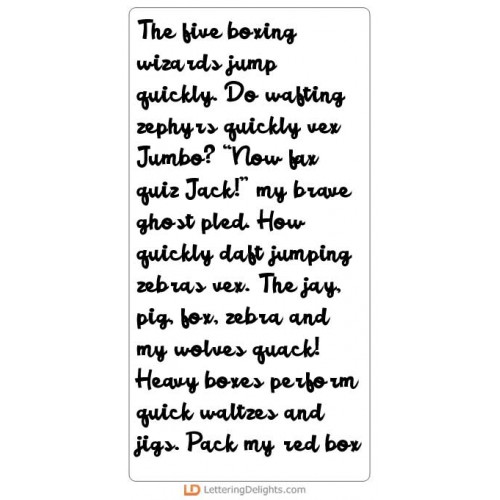 The five boxing
wizards jump
quickly. Do wafting
zephyrs quickly vex
Jumbo? “Now fax
quiz Jack!” my brave
ghost pled. How
quickly daft jumping
zebras vex. The jay,
pig, fox, zebra and
my wolves quack!
Heavy boxes perform
quick waltzes and
jigs. Pack my red box
LD LetteringDelights.com